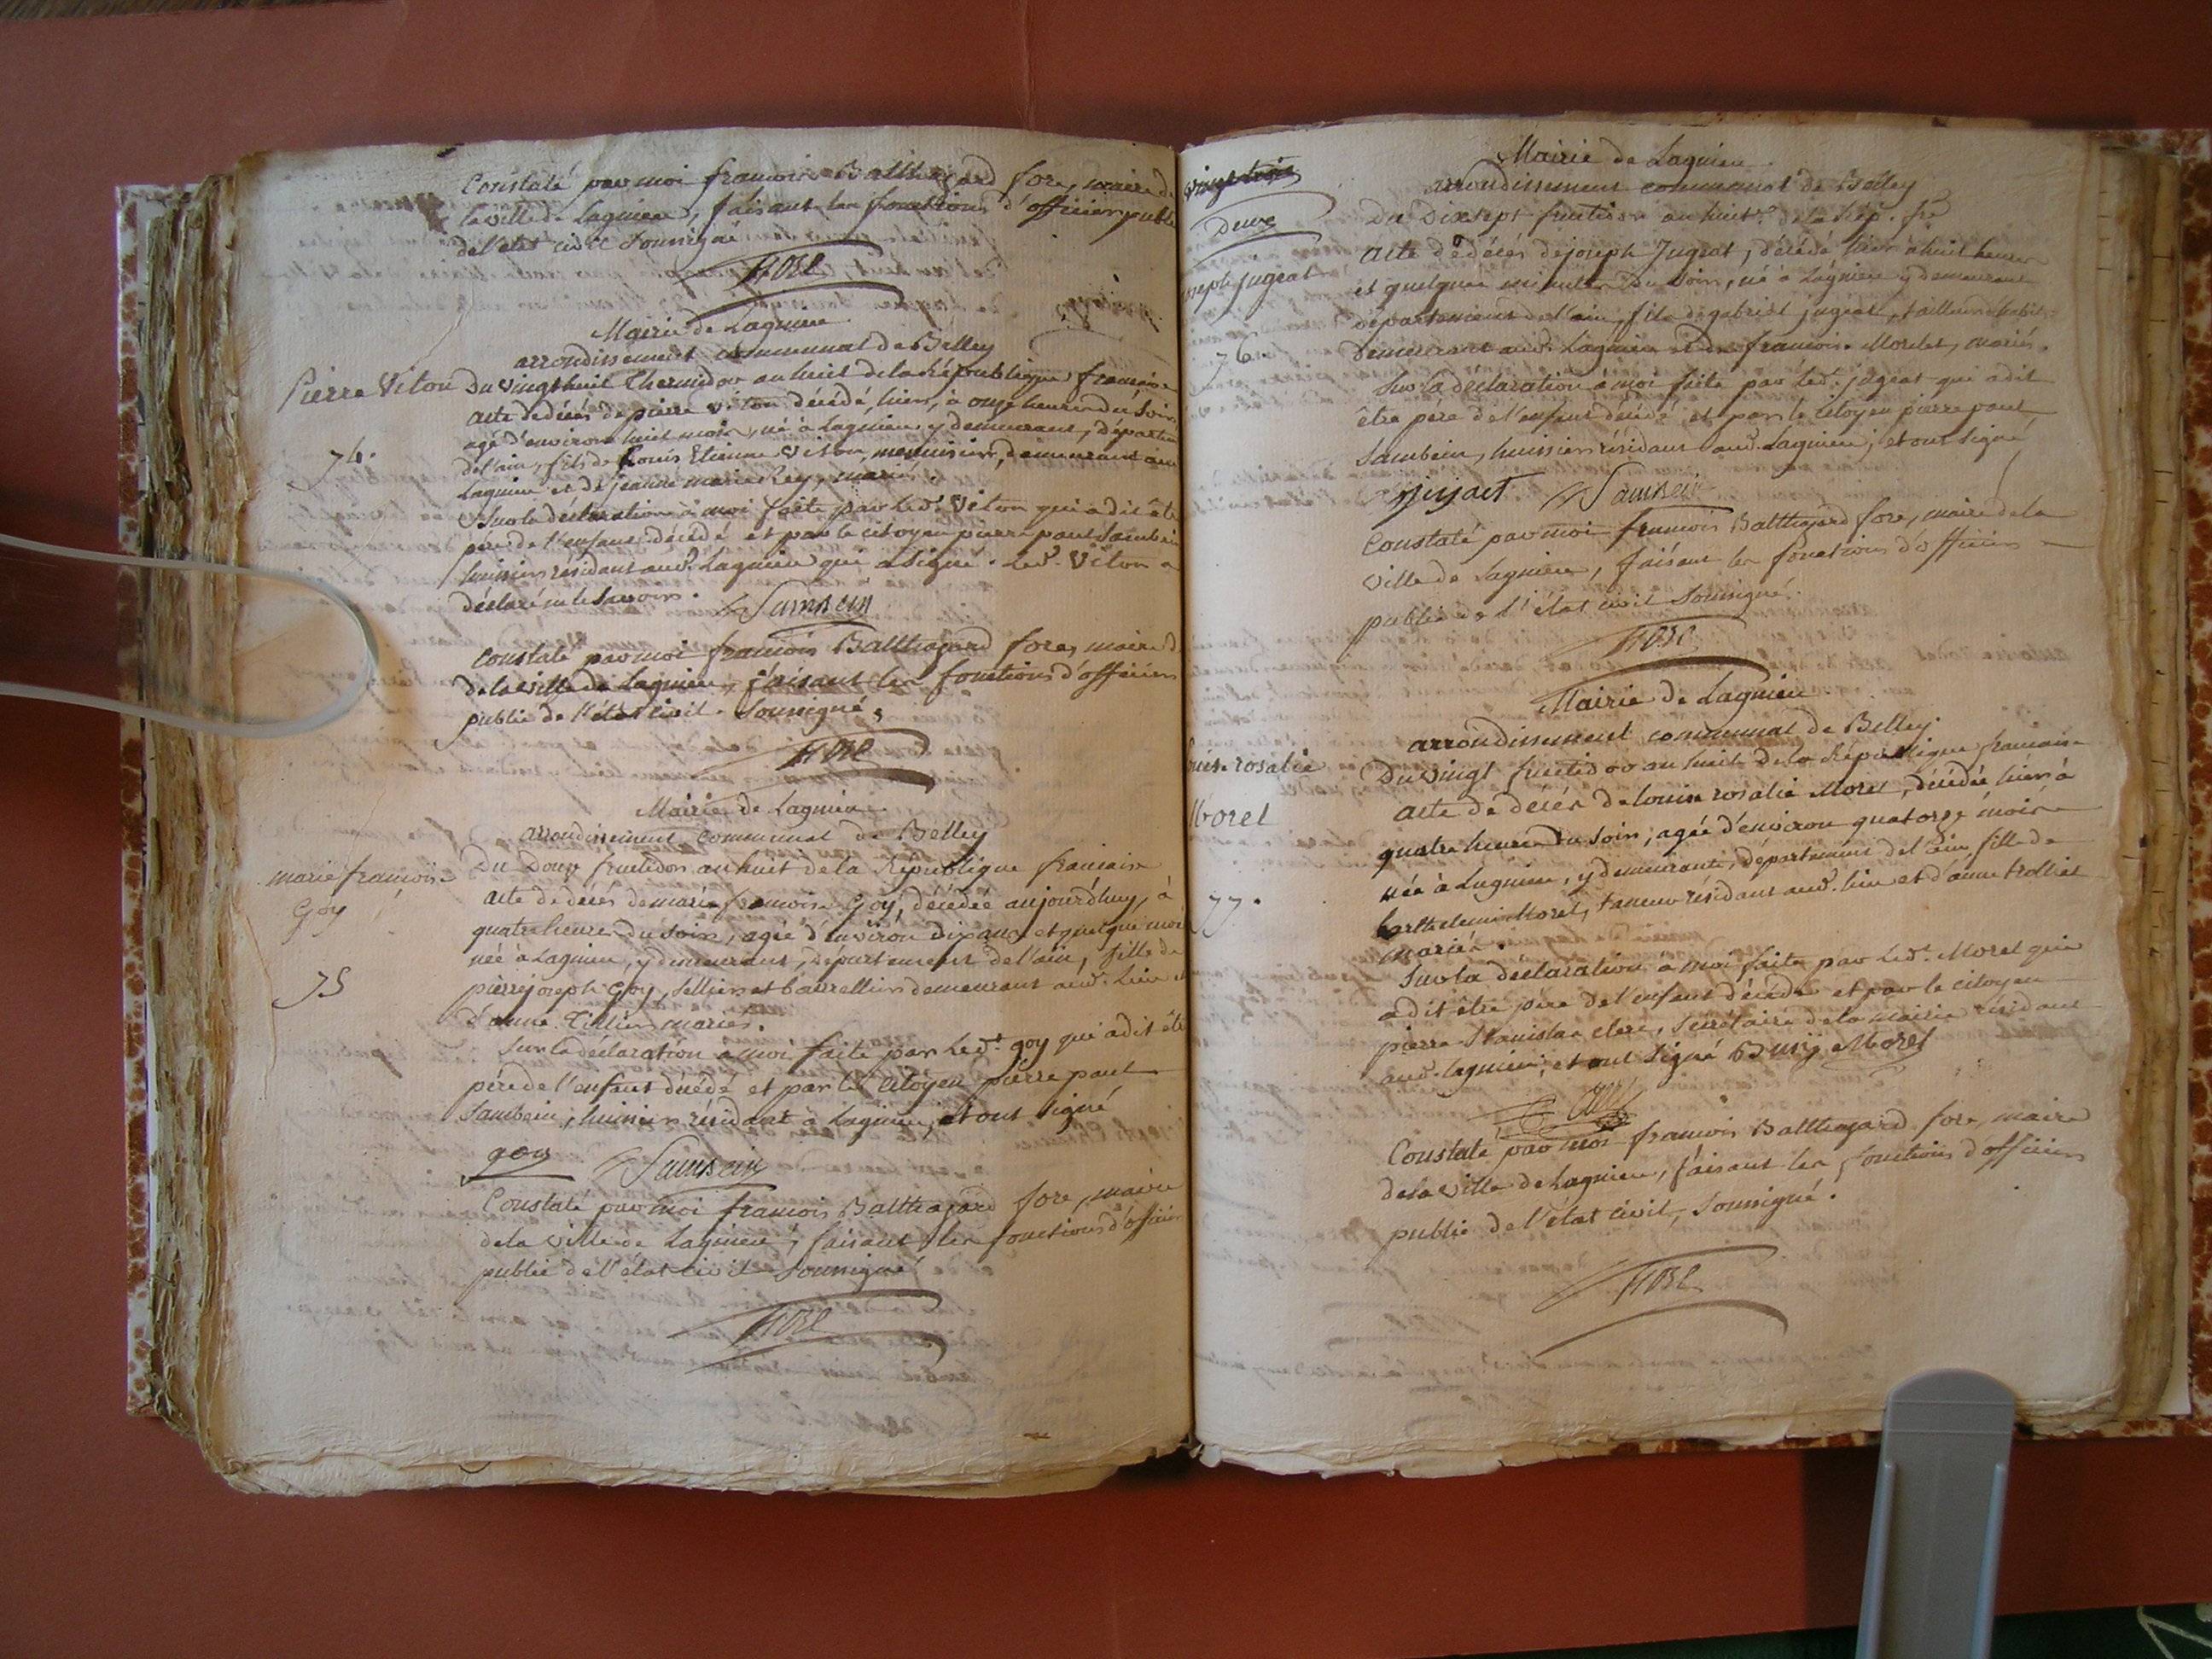 Constaté par moi francois Balthazard fore, maire de
la ville de Lagnieu, faisant les fonctions d'officier public
de l'état civil soussigné
fore
Mairie de Lagnieu
arrondissement communal de Belley
Pierre Viton
74.
Du vingt huit Thermidor an huit de la République francaise
acte de décés de pierre viton décédé, hier, à onze heures du soir
agé d'environ huit mois, né à Lagnieu y demeurant, départem
de l'ain, fils de Louis Etienne Viton, menuisier, demeurant au
Lagnieu et de jeanne marie Rey, mariés.
Sur la déclaration à moi faite par led. Viton qui a dit être
père de l'enfant décédé et par le citoyen pierre paul Sambein
huissier résidant aud. Lagnieu qui a signé. Led. Viton a
déclaré ne le savoir.
Sambein
Constaté par moi francois Balthazard fore, maire d
de la ville de Lagnieu, faisant les fonctions d'officier
public de l'état civil. Soussigné,
fore
Mairie de Lagnieu
arrondissement communal de Belley
marie francoise
Goy
75
Du Douze fructidor an huit de la République francaise
acte de décés de marie francoise Goy, décédée aujourd'huy, à
quatre heures du soir, agée d'environ dix ans et quelque mois
née à Lagnieu, y demeurant, département de l'ain, fille de
pierre joseph Goy, sellier et bourrellier demeurant aud. Lieu et
d'anne Tillier mariés.
Sur la déclaration à moi faite par led.t goy qui a dit être
père de l'enfant décédé et par le citoyen pierre paul
Sambein, huissier résidant à Lagnieu, et ont signé
goy Sambein
Constaté par moi francois Balthazard fore, maire
de la ville de Lagnieu, faisant les fonctions d'officier
public de l'état civil soussigné
fore
vingt trois
Deux
Mairie de Lagnieu
arrondissement communal de Belley
joseph jugeat
76.
Du Dixsept fructidor an huit.e de la Rép. fre
acte de décés de joseph Jugeat, décédé hier à huit heures
et quelques minutes du soir, né à Lagnieu y demeurant
département de l'ain, fils de gabriel jugeat, tailleur d'habits
demeurant aud. Lagnieu et de francoise Morelet, mariés.
Sur la déclaration à moi faite par led. jugeat qui a dit
être père de l'enfant décédé et par le citoyen pierre paul
Sambein, huissier résidant aud. Lagnieu, et ont signé
jujact Sambein
Constaté par moi francois Balthazard fore, maire de la
ville de Lagnieu, faisant les fonctions d'officier
public de l'état civil soussigné.
fore
Mairie de Lagnieu
arrondissement communal de Belley
Louise rosalie
Morel
77.
Du vingt fructidor an huit de la République francaise
acte de décés de louise rosalie Morel, décédée hier à
quatre heures du soir, agée d'environ quatorze mois
née à Lagnieu, y demeurante, département de l'ain, fille de
barthelemi Morel, tanneur résidant aud. lieu et d'anne trollier
mariés.
Sur la déclaration à moi faite par led.t Morel qui
a dit être père de l'enfant décédé et par le citoyen
pierre Stanislas clerc, secrétaire de la mairie résidant
aud. lagnieu, et ont signé Bmy Morel
Constaté par moi francois Balthazard fore, maire
de la ville de Lagnieu, faisant les fonctions d'officier
public de l'état civil, soussigné.
fore